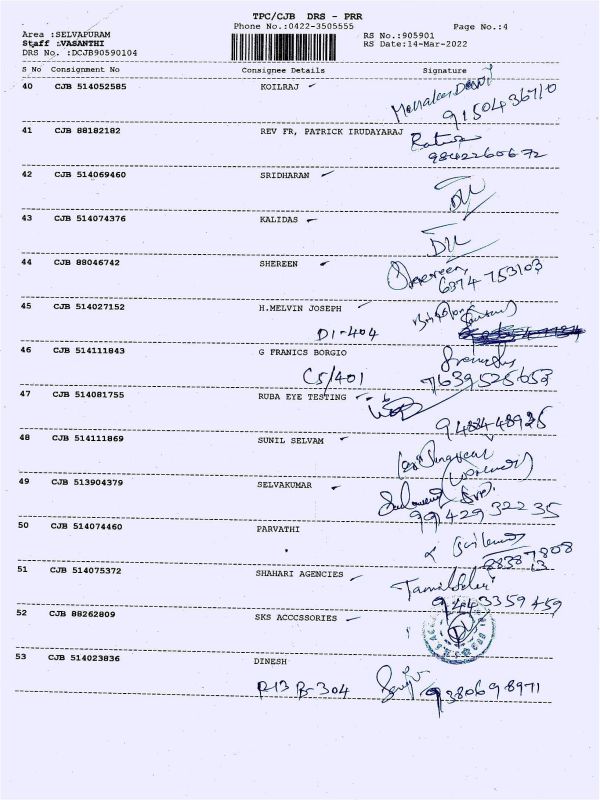 TPC/CJB DRS - PRR
Phone No.:0422-3505555 Page No.:4
Area :SELVAPURAM RS No.:905901
Staff :VASANTHI RS Date:14-Mar-2022
DRS No. :DCJB90590104
S No Consignment No Consignee Details Signature
40 CJB 514052585 KOILRAJ
9150436710
41 CJB 88182182 REV FR, PATRICK IRUDAYARAJ
9842260672
42 CJB 514069460 SRIDHARAN
43 CJB 514074376 KALIDAS
44 CJB 88046742 SHEREEN Shereen
6374753103
45 CJB 514027152 H.MELVIN JOSEPH
D1-404
46 CJB 514111843 G FRANICS BORGIO
C5/401 7639525653
47 CJB 514081755 RUBA EYE TESTING
48 CJB 514111869 SUNIL SELVAM
49 CJB 513904379 SELVAKUMAR
9942932235
50 CJB 514074460 PARVATHI
51 CJB 514075372 SHAHARI AGENCIES Tamil Selvi
9443359459
52 CJB 88262809 SKS ACCCSSORIES
53 CJB 514023836 DINESH
B-304 9380698971